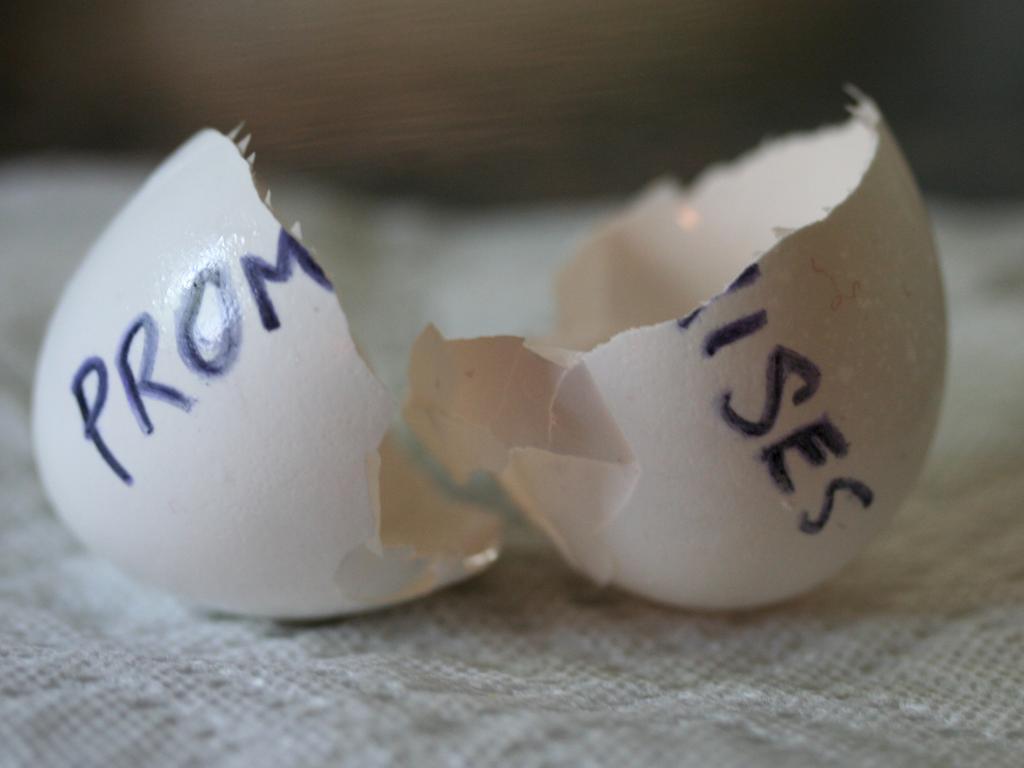 PROM ISES